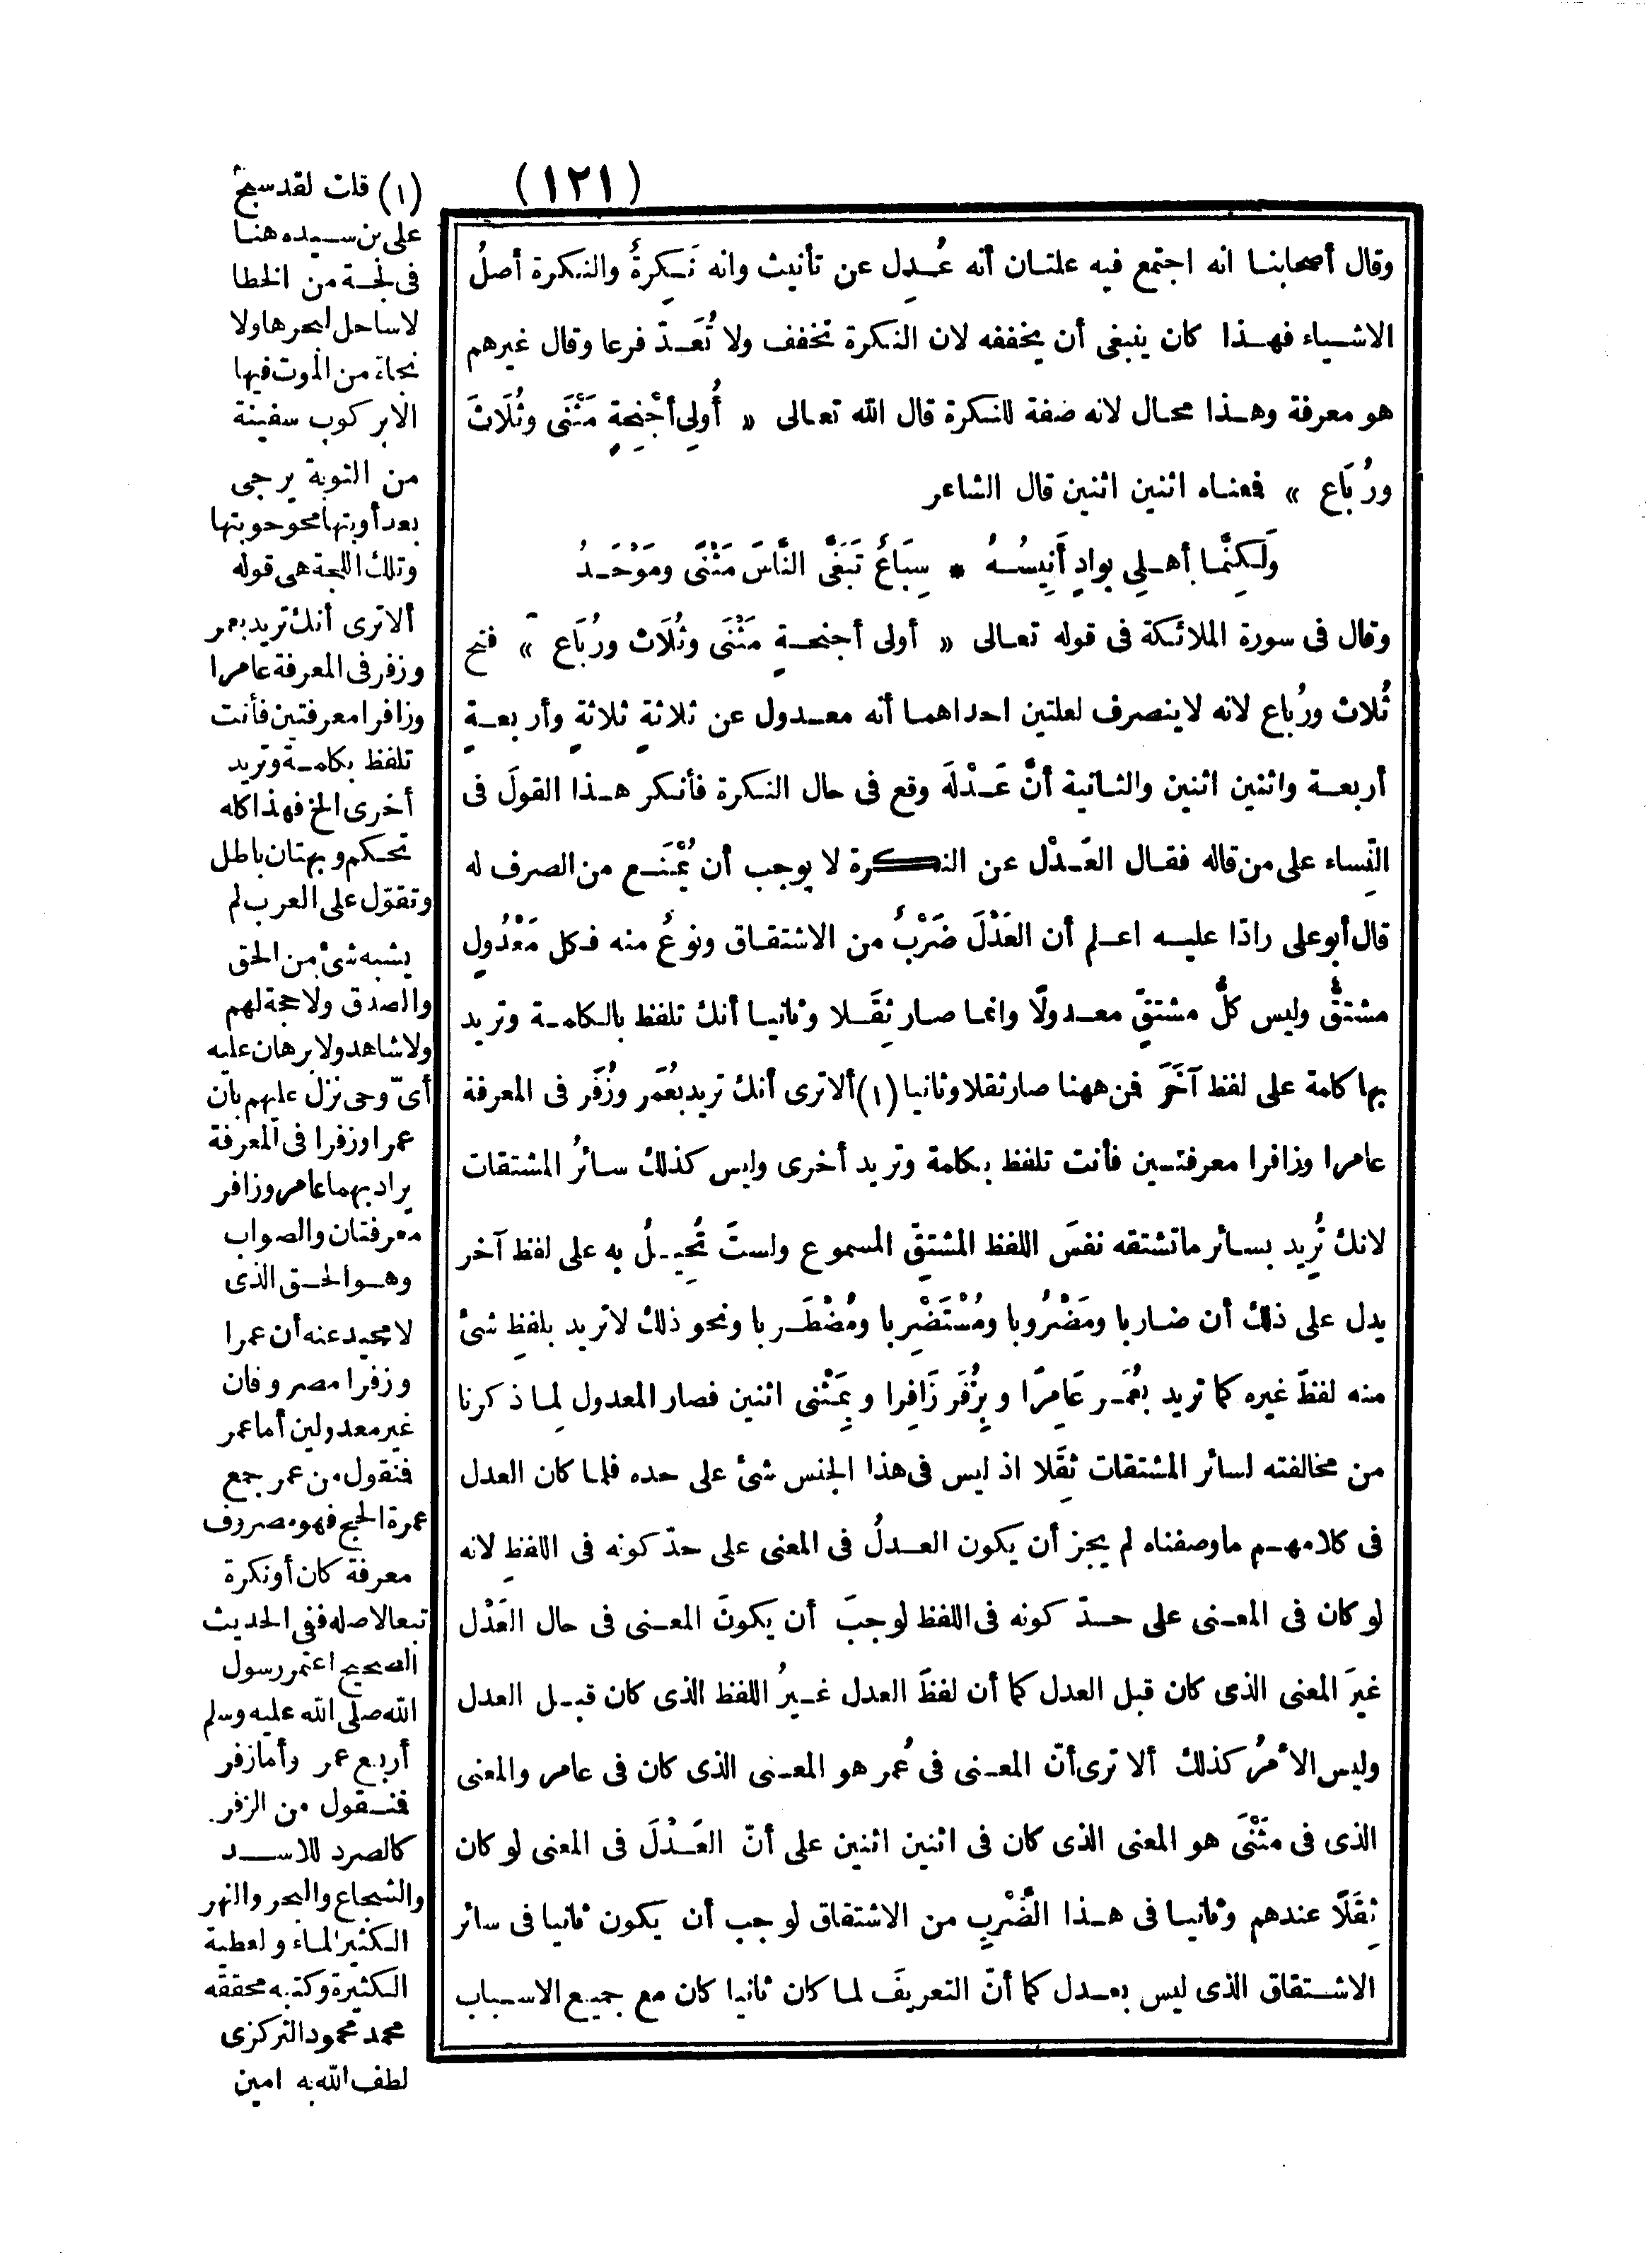 (١٢١)
وقال أصحابنا انه اجتمع فيه علتان أنه عُدِل عن تأنيث وانه نَكِرةٌ والنكرة أصلُ
الاشياء فهذا كان ينبغى أن يخففه لان النكرة تخفف ولا تُعَدّ فرعا وقال غيرهم
هو معرفة وهذا محال لانه صفة للنكرة قال الله تعالى « أُولِى أَجْنِحةٍ مَثْنَى وثُلَاثَ
ورُبَاع » فعناه اثنين اثنين قال الشاعر
ولَكِنَّمَا أهلِى بوادٍ أَنِيسُهُ * سِبَاعٌ تَبَغَّى النَّاسَ مَثْنَى ومَوْحَدُ
وقال فى سورة الملائكة فى قوله تعالى « أولى أجنحةٍ مَثْنَى وثُلَاثَ ورُبَاعَ » فتح
ثُلاث ورُباع لانه لاينصرف لعلتين احداهما أنه معدول عن ثلاثةٍ ثلاثةٍ وأربعةٍ
أربعة واثنين اثنين والثانية أنَّ عَدْلَه وقع فى حال النكرة فأنكر هذا القولَ فى
النِّساء على من قاله فقال العَدْل عن النكرة لا يوجب أن يُمْنَع من الصرف له
قال أبو على رادّا عليه اعلم أن العَدْلَ ضَرْبٌ من الاشتقاق ونوعٌ منه فكل مَعْدُولٍ
مشتقٌّ وليس كلُّ مشتقٍّ معدولًا وانما صار ثِقَلا وثانيا أنك تلفظ بالكامة وتريد
بها كامة على لفظ آخَرَ فمن ههنا صار ثقلا وثانيا (١) ألاترى أنك تريد بعُمَر وزُفَر فى المعرفة
عامرا وزافرا معرفتين فأنت تلفظ بكامة وتريد أخرى وليس كذلك سائرُ المشتقات
لانك تُرِيد بسائر ماتشتقه نفسَ اللفظ المشتقِّ المسموع ولستَ تُحِيلُ به على لفظ آخر
يدل على ذلك أن ضاربا ومَضْرُوبا ومُسْتَضْرِبا ومُضْطَرِبا ونحو ذلك لاتريد بلفظِ شئ
منه لفظَ غيره كما تريد بعُمَر عَامِرًا وبِزُفَر زَافِرا وبِمَثْنى اثنين فصار المعدول لِما ذكرنا
من مخالفته لسائر المشتقات ثِقَلا اذ ليس فى هذا الجنس شئ على حده فلما كان العدل
فى كلامهم ماوصفناه لم يجز أن يكون العدلُ فى المعنى على حدّ كونه فى اللفظِ لانه
لو كان فى المعنى على حدّ كونه فى اللفظ لوجبَ أن يكونَ المعنى فى حال العَدْل
غيرَ المعنى الذى كان قبل العدل كما أن لفظَ العدل غيرُ اللفظ الذى كان قبل العدل
وليس الأمرُ كذلك ألا ترى أنّ المعنى فى عُمر هو المعنى الذى كان فى عامر والمعنى
الذى فى مَثْنَى هو المعنى الذى كان فى اثنين اثنين على أنّ العَدْلَ فى المعنى لو كان
ثِقَلًا عندهم وثانيا فى هذا الضَّرْبِ من الاشتقاق لوجب أن يكون ثانيا فى سائر
الاشتقاق الذى ليس بعدل كما أنّ التعريفَ لما كان ثانيا كان مع جميع الاسباب
(١) قلت لقد سبح
على بن سيده هنا
فى لجة من الخطا
لاساحل لبحرها ولا
نجاة من الموت فيها
الابركوب سفينة
من التوبة يرجى
بعد أوبتها محو حوبتها
وتلك اللجة هى قوله
ألاترى أنك تريد بعمر
وزفر فى المعرفة عامرا
وزافرا معرفتين فأنت
تلفظ بكامة وتريد
أخرى الخ فهذا كله
تحكم وبهتان باطل
وتقوّل على العرب لم
يشبه شئ من الحق
والصدق ولاحجة لهم
ولاشاهد ولابرهان عليه
أىّ وحى نزل عليهم بأن
عمرا وزفرا فى المعرفة
يراد بهما عامر وزافر
معرفتان والصواب
وهو الحق الذى
لامحيد عنه أن عمرا
وزفرا مصروفان
غير معدولين أما عمر
فنقول من عمر جمع
عمرة الحج فهو مصروف
معرفة كان أونكرة
تبعا لاصله ففى الحديث
الصحيح اعتمر رسول
الله صلى الله عليه وسلم
أربع عمر وأما زفر
فنقول من الزفر
كالصرد للاسد
والشجاع والبحر والنهر
الكثير الماء ولعطية
الكثيرة وكتبه محققه
محمد محمود التركزى
لطف الله به امين